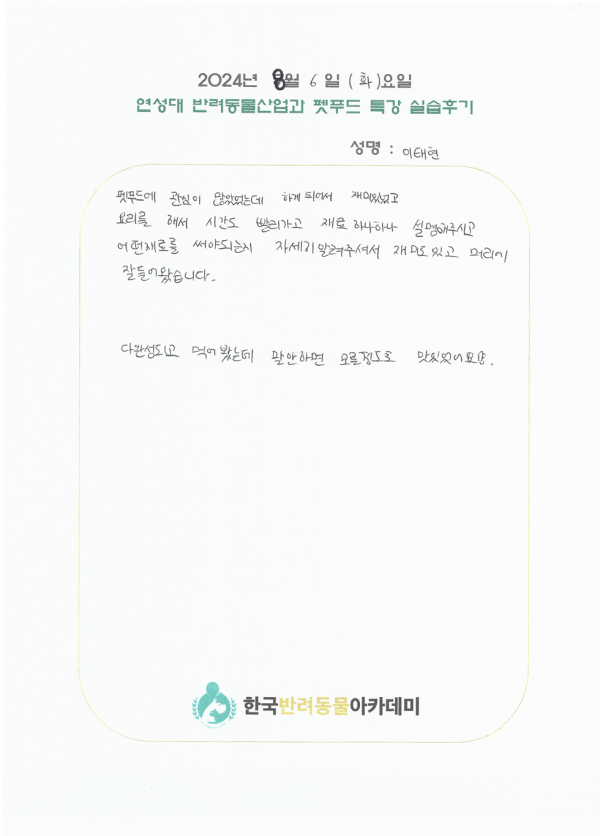 2024년 8월 6일 (화)요일
연성대 반려동물산업과 펫푸드 특강 실습후기
성명 : 이태현
펫푸드에 관심이 많았었는데 하게 되어서 재미있었고
요리를 해서 시간도 빨리가고 재료 하나하나 설명해주시고
어떤재료를 써야되는지 자세히 알려주셔서 재미도 있고 머리에
잘들어왔습니다.
다완성되고 먹어 봤는데 말안하면 모를정도로 맛있었어요.
한국반려동물아카데미